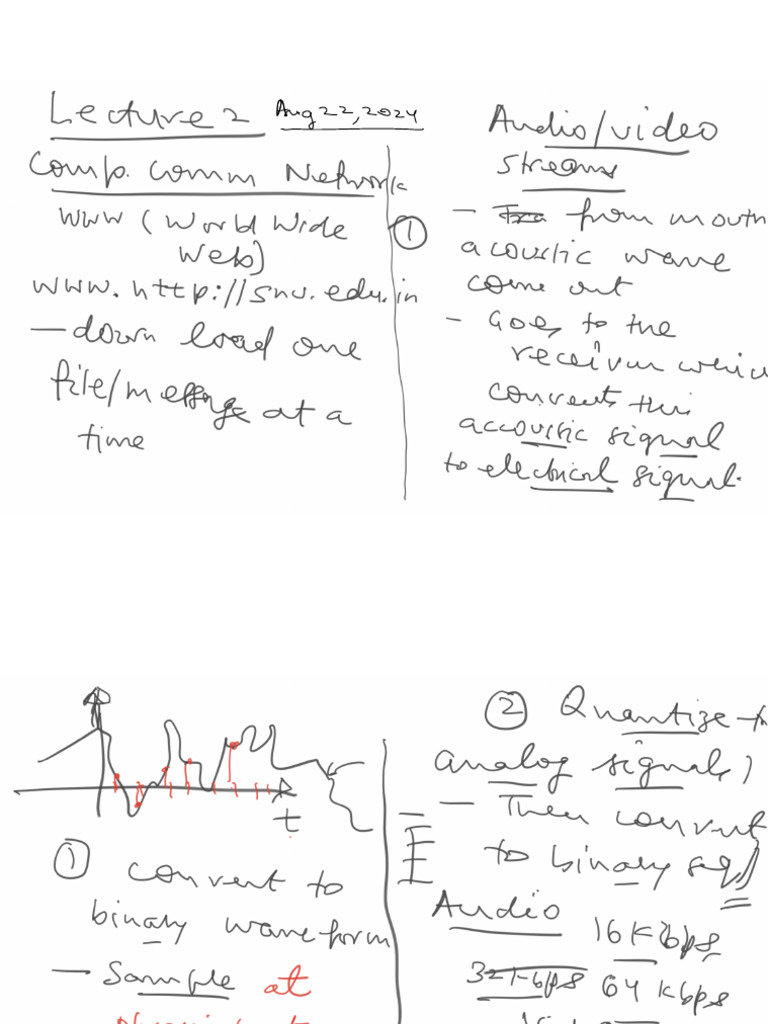 Lecture 2 Aug 22, 2024
Comp. Comm Network
WWW (World Wide
Web)
www.http://snu.edu.in
— down load one
file/message at a
time
①
Audio/video
streams
— from mouth
acoustic wave
come out
- Goes to the
receiver which
converts this
accoustic signal
to electrical signal.
t
① convert to
binary waveform
— Sample at
② Quantize
analog signal
— Then convert
to binary seq
Audio 16 Kbps
32 kbps 64 kbps